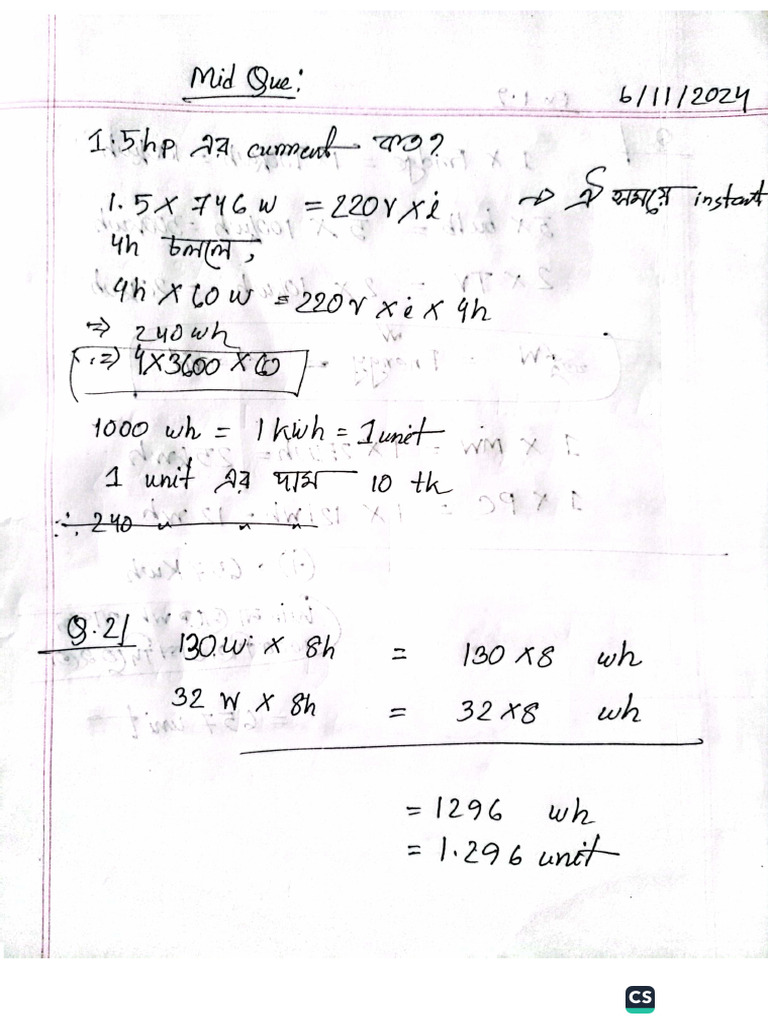 Mid Que:
6/11/2024
1.5hp এর current কত?
1.5 X 746 w = 220v x i → ঐ সময়ে instant
4h চললে,
4h X 60 w = 220v x i x 4h
⇒ 240 wh
⇒ 4X3600 X 60
1000 wh = 1 kwh = 1 unit
1 unit এর দাম 10 tk
∴ 240 " " "
Q.2/
130 W X 8h = 130 X 8 wh
32 W X 8h = 32 X 8 wh
= 1296 wh
= 1.296 unit
CS